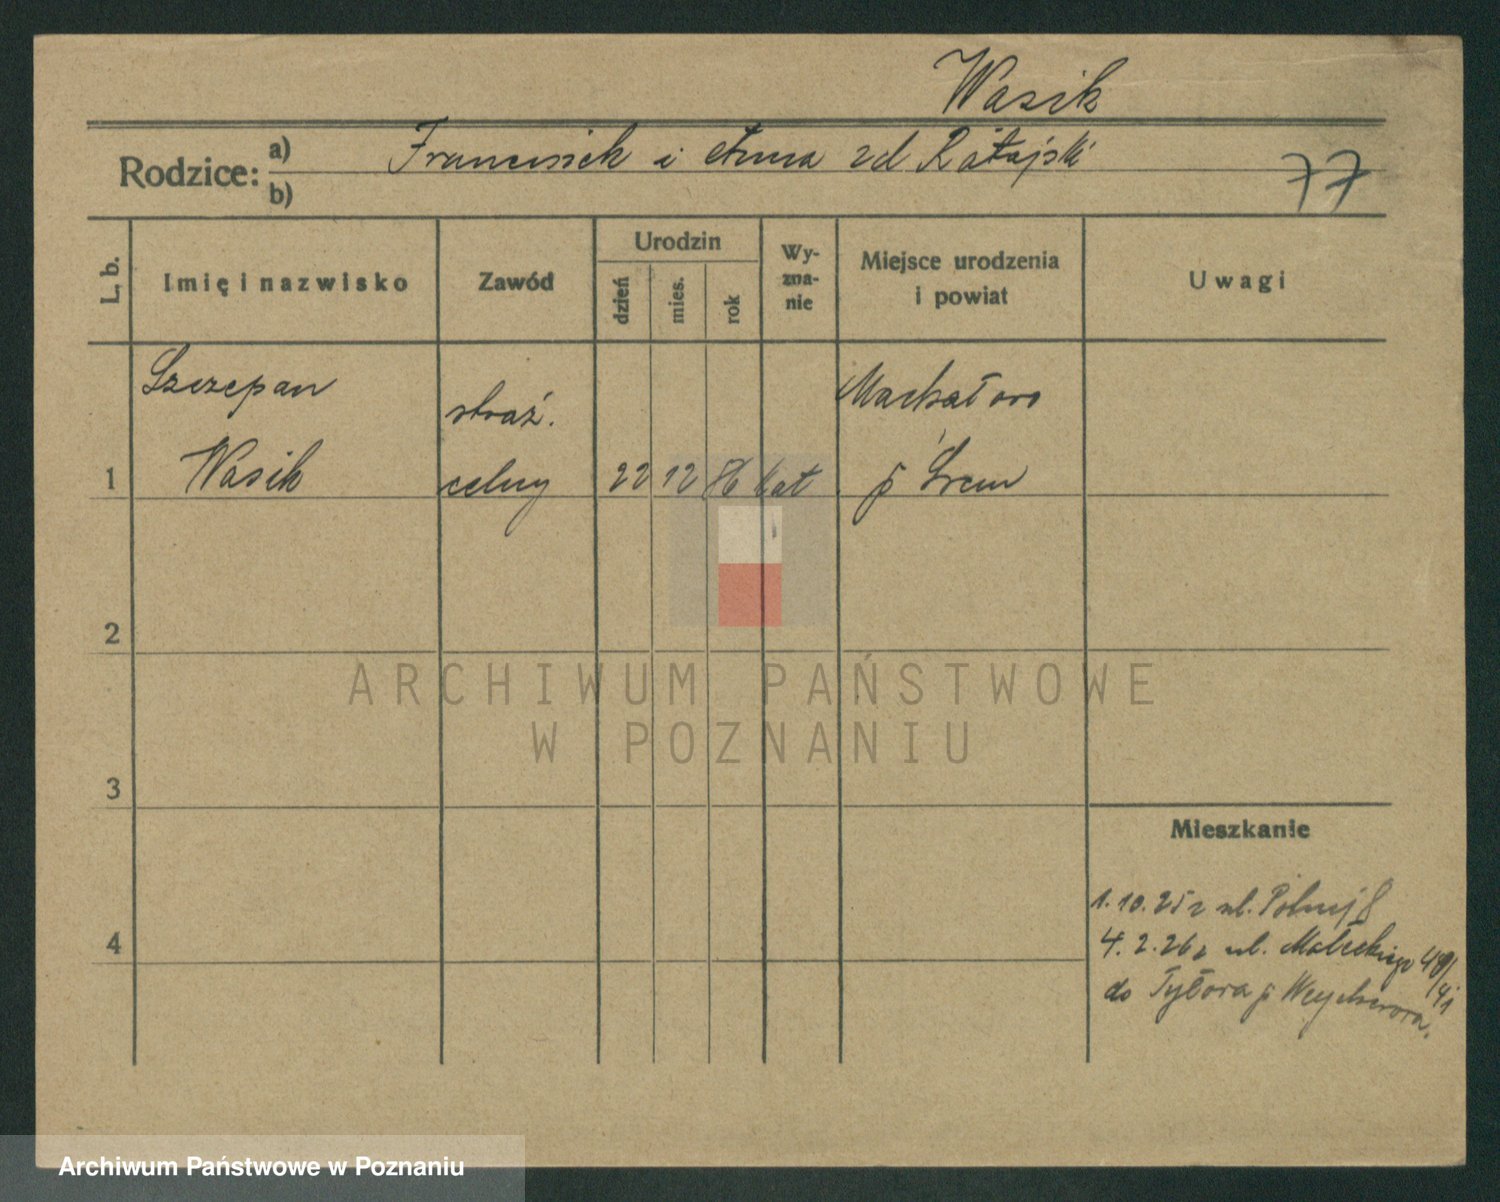 Wasik
Rodzice: a) Franciszek i Anna zd Ratajski
b)
77
L. b.
Imię i nazwisko
Zawód
Urodzin
dzień
mies.
rok
Wy-
zna-
nie
Miejsce urodzenia
i powiat
Uwagi
Szczepan
straż.
1 Wasik celny 22 12 86 kat p Śrem
2
3
4
Mieszkanie
1.10.25 z ul. Polnej 8
4.2.26 z ul. Małeckiego
do p Wejherowa.
ARCHIWUM PAŃSTWOWE
W POZNANIU
Archiwum Państwowe w Poznaniu